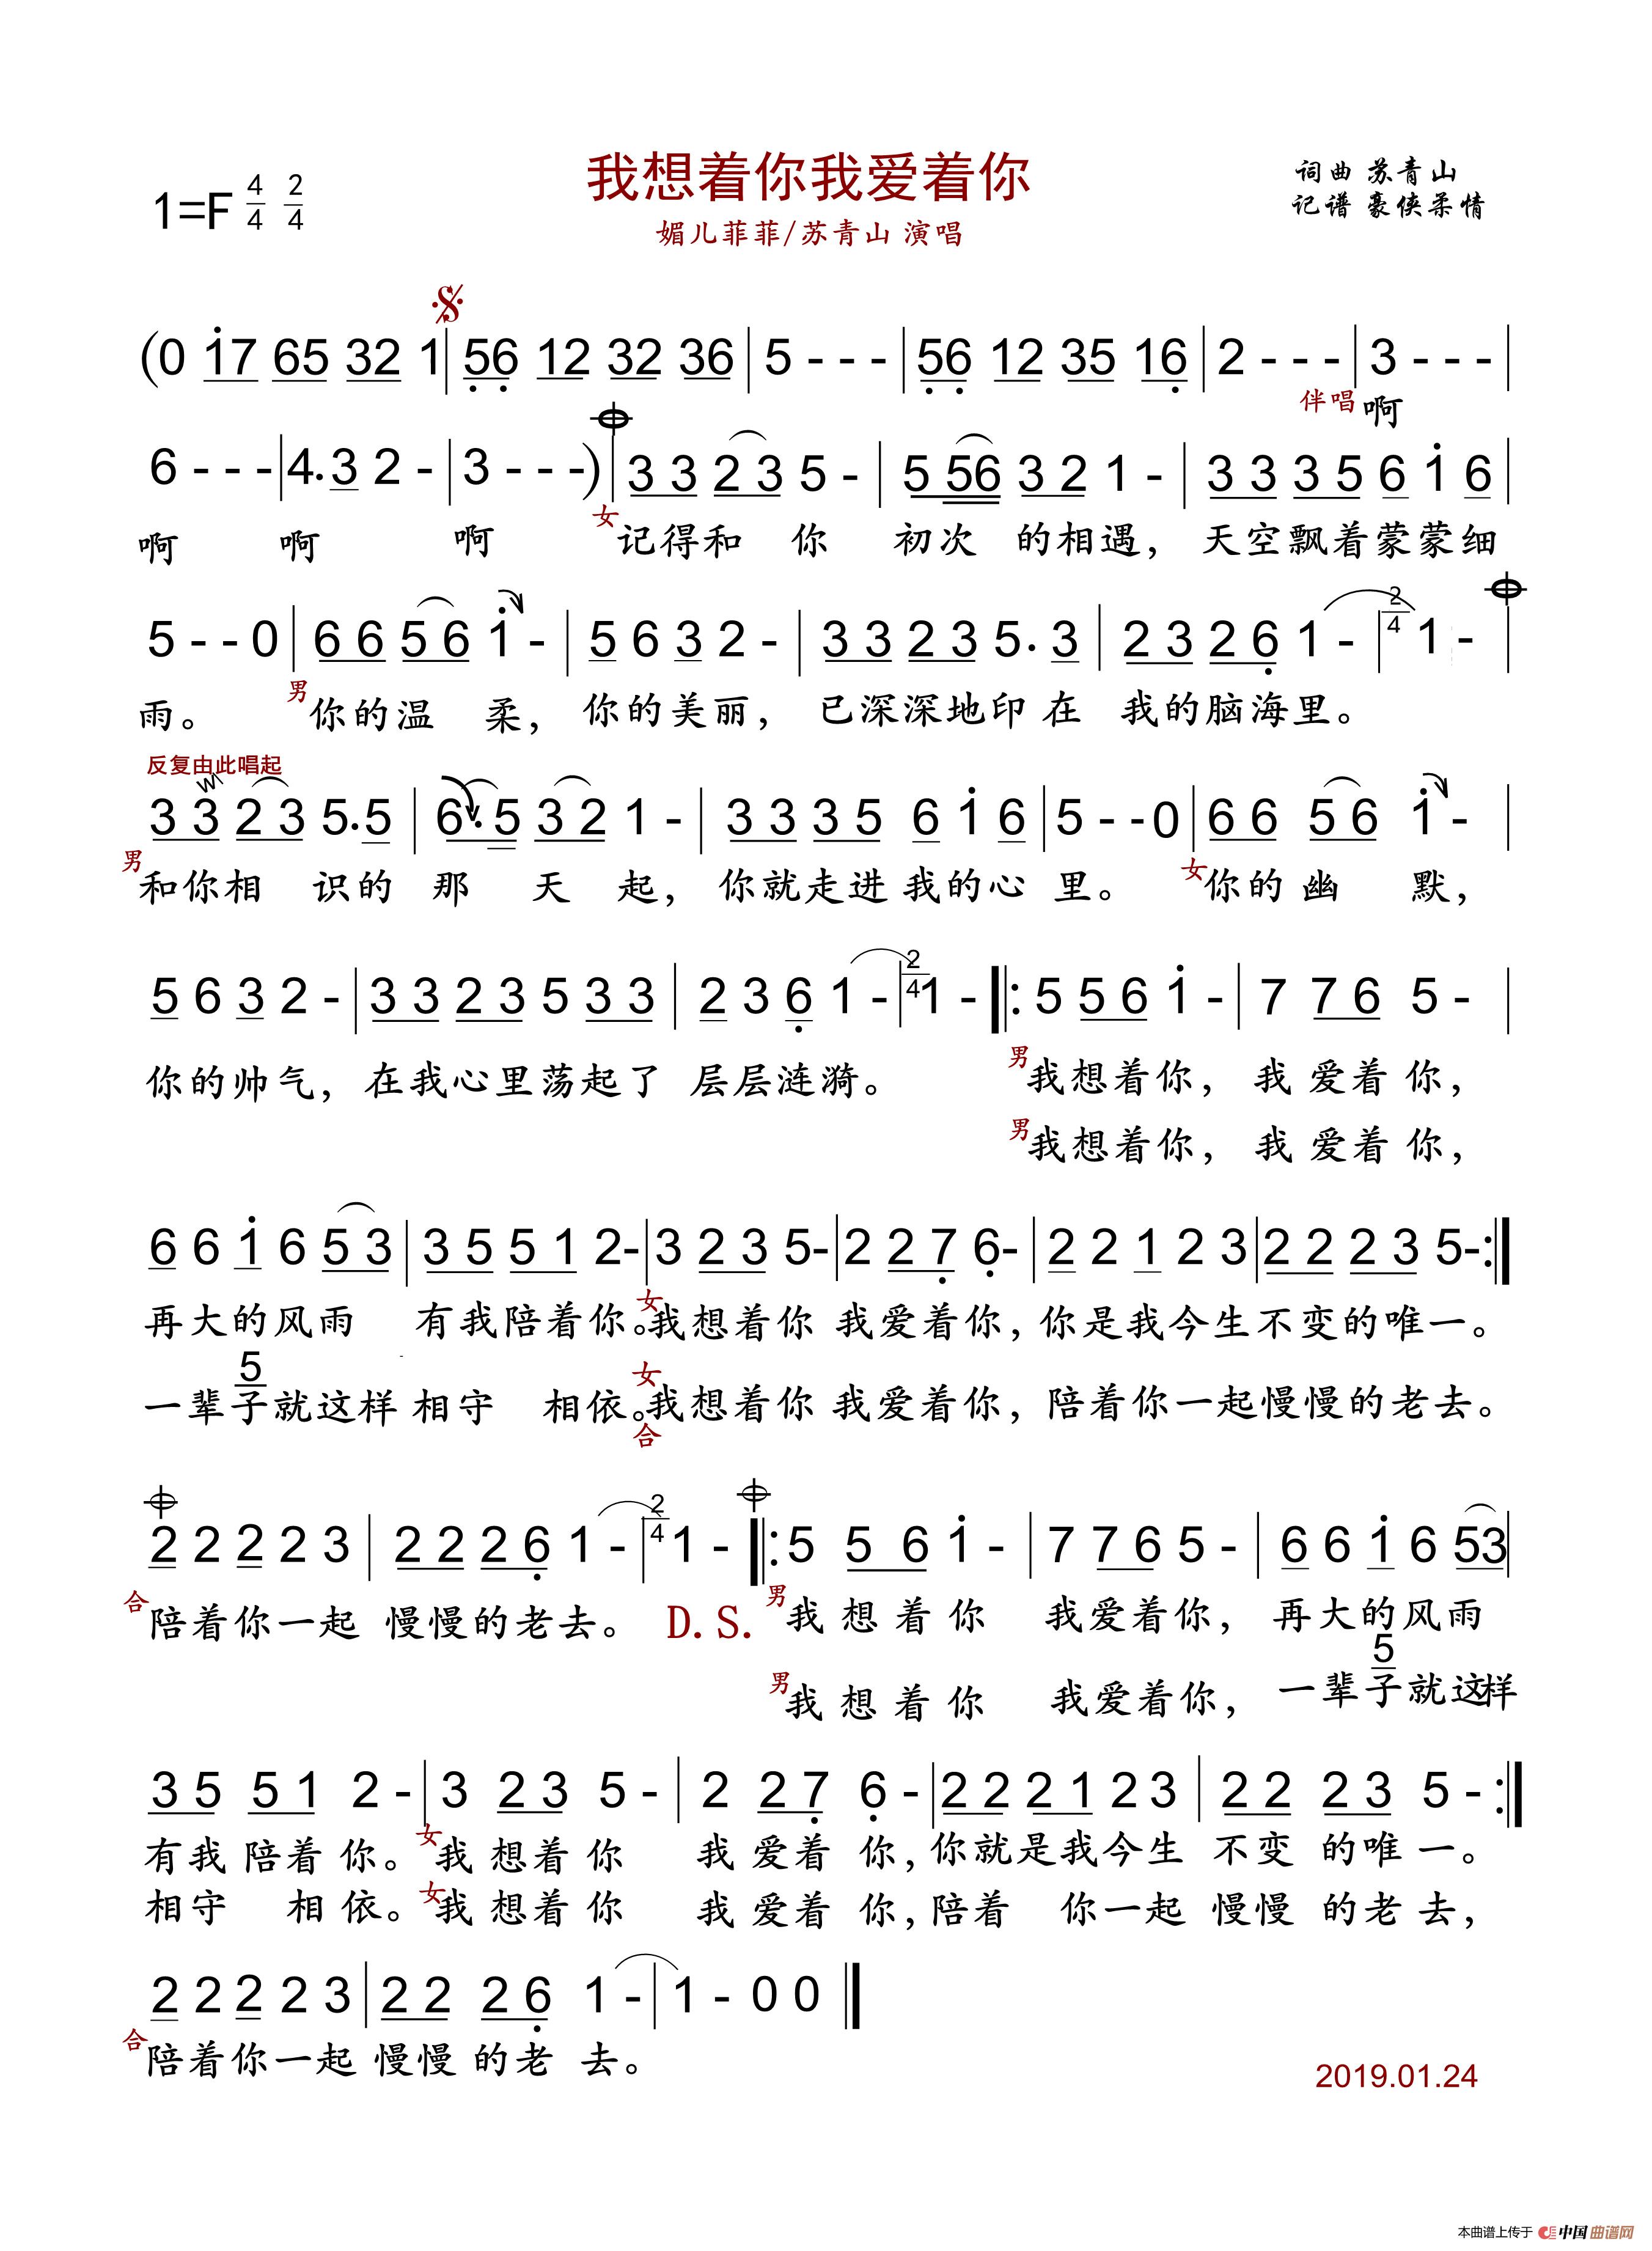 我想着你我爱着你
1=F 4/4 2/4
词曲 苏青山
媚儿菲菲/苏青山 演唱
记谱 豪侠柔情
(0 17 65 32 1 | 56 12 32 36 | 5 - - - | 56 12 35 16 | 2 - - - | 3 - - - |
伴唱 啊
6 - - - | 4. 3 2 - | 3 - - -) | 3 3 2 3 5 - | 5 56 3 2 1 - | 3 3 3 5 6 1 6 |
啊 啊 啊 女 记得和 你 初次 的相遇，天空飘着蒙蒙细
5 - - 0 | 6 6 5 6 1 - | 5 6 3 2 - | 3 3 2 3 5. 3 | 2 3 2 6 1 - | 2/4 1 - |
雨。 男 你的温 柔，你的美丽，已深深地印在 我的脑海里。
反复由此唱起
3 3 2 3 5. 5 | 6. 5 3 2 1 - | 3 3 3 5 6 1 6 | 5 - - 0 | 6 6 5 6 1 - |
男 和你相 识的 那 天 起，你就走进我的心 里。 女 你的 幽 默，
5 6 3 2 - | 3 3 2 3 5 3 3 | 2 3 6 1 - | 2/4 1 - |: 5 5 6 1 - | 7 7 6 5 - |
你的帅气，在我心里荡起了 层层涟漪。 男 我想着你，我 爱着 你，
男 我想着你，我 爱着 你，
6 6 1 6 5 3 | 3 5 5 1 2 - | 3 2 3 5 - | 2 2 7 6 - | 2 2 1 2 3 | 2 2 2 3 5 - :|
再大的风雨 有我陪着你。女 我想着你 我爱着你，你是我今生不变的唯一。
5
一辈子就这样 相守 相依。女 合 我想着你 我爱着你，陪着你一起慢慢的老去。
2 2 2 2 3 | 2 2 2 6 1 - | 2/4 1 - |: 5 5 6 1 - | 7 7 6 5 - | 6 6 1 6 53 |
合 陪着你一起 慢慢的老去。 D.S. 男 我 想 着 你 我爱着你，再大的风雨
5
男 我 想 着 你 我爱着你，一辈子就这样
3 5 5 1 2 - | 3 2 3 5 - | 2 2 7 6 - | 2 2 2 1 2 3 | 2 2 2 3 5 - :|
有我 陪着 你。女 我 想着 你 我 爱着 你，你就是我今生 不变 的唯 一。
相守 相依。女 我 想着 你 我 爱着 你，陪着 你一起 慢慢 的老 去，
2 2 2 2 3 | 2 2 2 6 1 - | 1 - 0 0 ‖
合 陪着你一起 慢慢 的老 去。
2019.01.24
本曲谱上传于 中国曲谱网